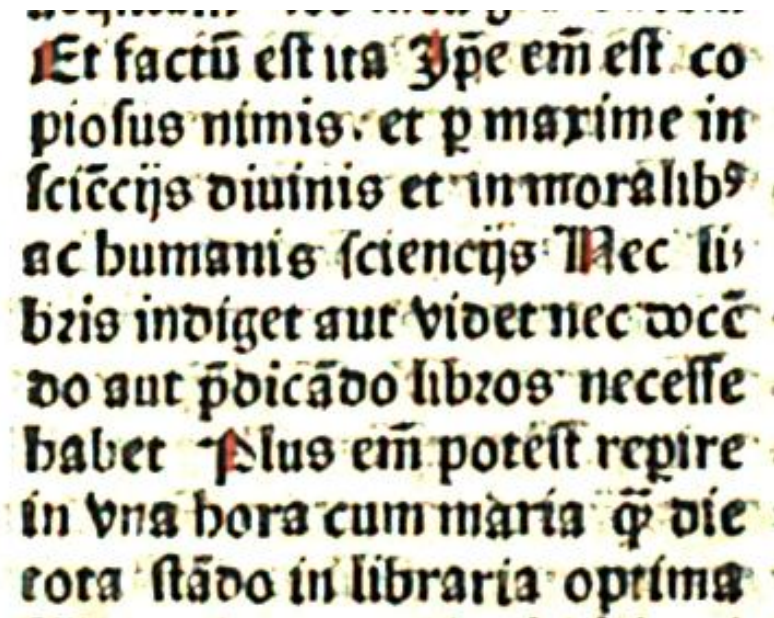 Et factū eſt ita Ip̄e em̄ eſt co
pioſus nimis. et ꝑ maxime in
ſciēcijs diuinis et in moralibꝰ
ac humanis ſciencijs Nec li⸗
bꝛis indiget aut videt nec docē
do aut p̄dicādo libꝛos neceſſe
habet Plus em̄ poteſt reꝑire
in vna hora cum maria q̄ die
tota ſtādo in libraria optima